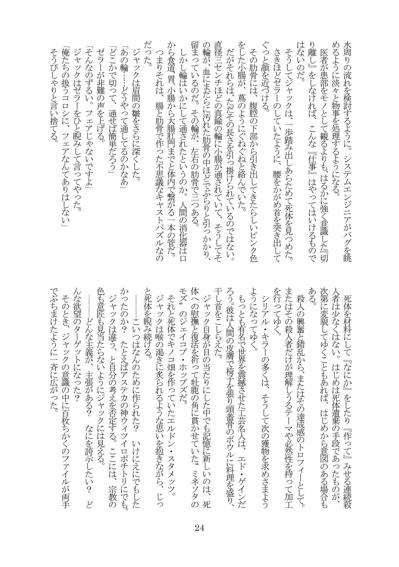 水周りの流れを検討するように。システムエンジニアがバグを眺
めるように淡々と物事を処理するようになる。
　医者が患部をモノとして観るよりも、はるかに強く意識した『切
り離し』をしなければ、こんな『仕事』はやってはいけるもので
はないのだ。
　そうしてジャックは、一歩踏み出しあらためて死体を見つめた。
さきほどゼラーのしていたように、腰をかがめ首を突き出して
ぐっと顔を近づける。
　その肋骨には、腹腔の下部から引き出してきたらしいピンク色
をした小腸が、蔦のようにぐねぐねと絡んでいた。
　だがそれらは、ただその長さを引っ掛けられているのではない。
直径三センチほどの真鍮の輪に小腸が通されていて、そうしてそ
の輪が、血にまだらに汚れた肋骨の中ほどでぶらりと引っかかり、
留まっているのだ。その輪が、左右の肋骨で三つある。
　しかし輪はいかにして通されたというのか。人間の消化器は口
から食道、胃、小腸から大腸肛門までと体内で繋がる一本の管だ。
　つまりそれは、腸と肋骨で作った不思議なキャストパズルなの
だった。
　ジャックは眉間の皺をさらに深くした。
「あの輪……どうやって通してるのかなぁ」
「どこかで切って、通せば簡単だろう」
　ゼラーが非難の声を上げる。
「そんなのずるい。フェアじゃないですよ」
　ジャックはゼラーをひと睨みして言ってやった。
「俺たちの扱うコロシに、フェアなんてありはしない」
　そうぴしゃりと言い捨てる。
　死体を材料にして『なにか』をしたり『作って』みせる連続殺
人者は少なくはない。はじめは死体遺棄の手段であったものが、
次第に変貌してゆくこともあれば、はじめから意図のある場合も
ある。
　殺人の興奮と錯乱から、またはその達成感のトロフィーとして。
またはその殺人者だけが理解しうるテーマや必然性を持って加工
を行ってゆく。
　シリアル・キラーの多くは、そうして次の獲物を求めさまよう
ようになってゆく。
　もっとも有名で世界を震撼させた工芸名人は、エド・ゲインだ
ろう。彼は人間の皮膚で椅子を張り頭蓋骨のボウルに料理を盛り、
干し首をこしらえた。
　ジャック自身が目の当たりにした中でも記憶に新しいのは、死
体への慰撫と復活を祈って牡鹿の角に貫かせていた。ミネソタの
モズ、のジェイコブ・ホッブズだ。
　それと死体でキノコ畑を作っていたエルドン・スタメッツ。
　ジャックは喉の渇きに炙られるような思いを抱きながら、じっ
と死体を睨み続ける。
　――こいつはなんのために作られた？　いけにえにでもした
かったのか？　たとえばアステカの神ウィツィロポチトリにでも。
　ジャックは違う、と自分の考えを否定する。ここには、宗教の
色も意匠も見当たらないようにジャックには見える。
　――どんな主義が、主張がある？　なにを誇示したい？　ど
んな欲望のターゲットになった？
　そのとき、ジャックの意識の中に百枚ちかくのファイルが両手
でぶちまけたように一斉に広がった。
24